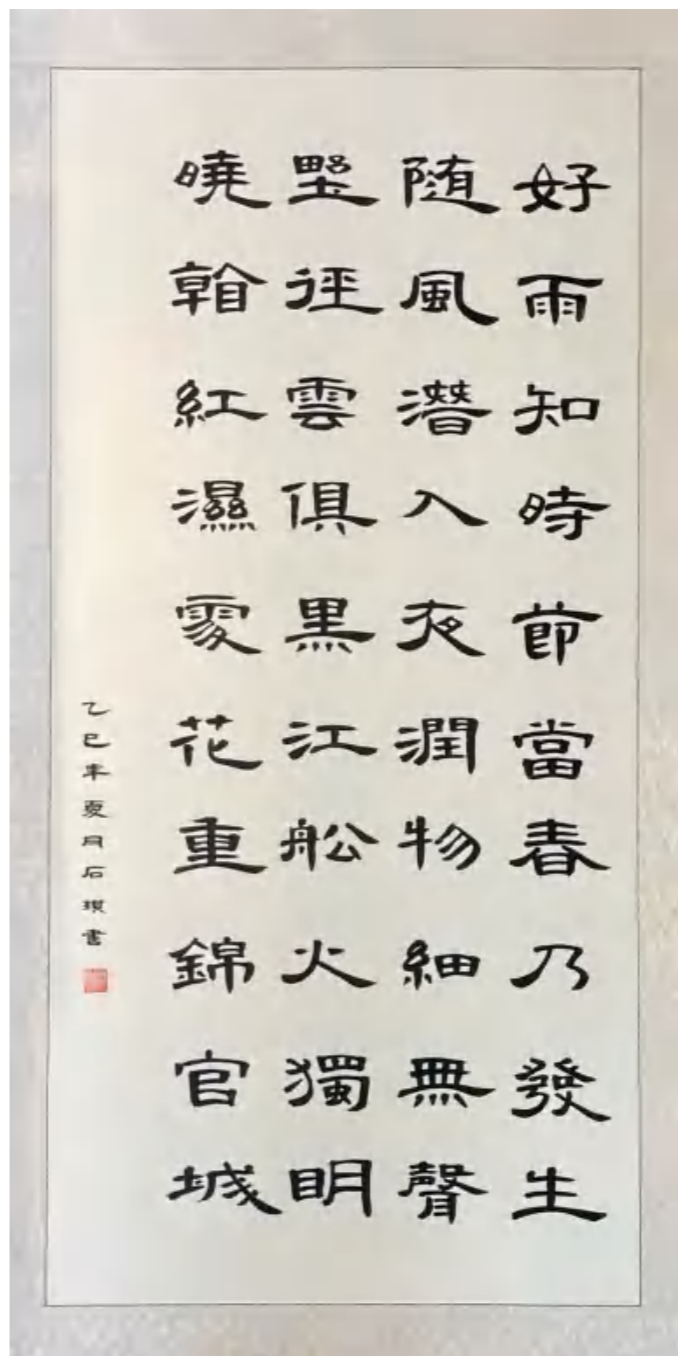 好雨知時節當春乃發生
随風潛入夜潤物細無聲
野徑雲俱黑江舩火獨明
曉看紅濕處花重錦官城
乙巳年夏月石琪書